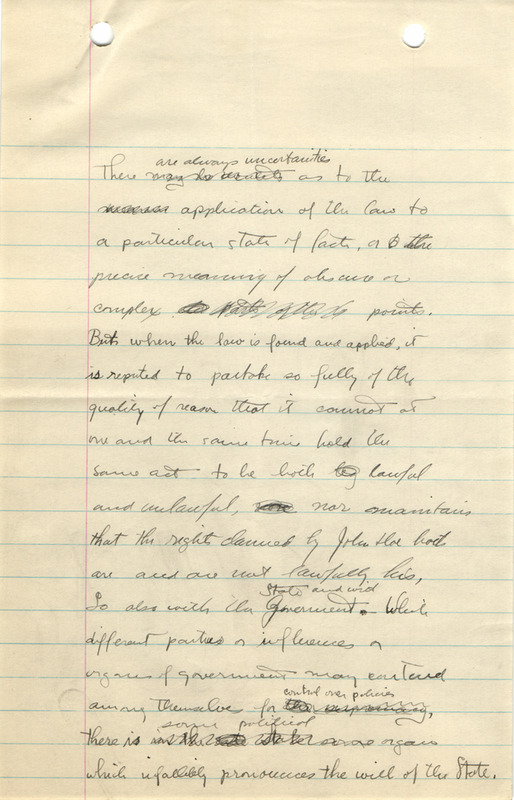 are always uncertainties
There may be doubts as to the
application of the law to
a particular state of facts, or to the
precise meaning of obscure or
complex points.
But when the law is found and applied, it
is reputed to partake so fully of the
quality of reason that it cannot at
one and the same time hold the
same act to be both lawful
and unlawful, nor maintain
that the rights claimed by John Doe both
are and are not lawfully his,
State and
So also with the Government. While
different parties or influences or
organs of government may contend
control over policies
among themselves for
some political
there is organ
which infallibly pronounces the will of the State.